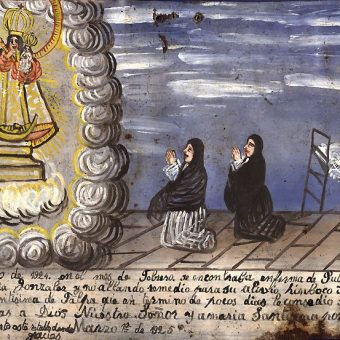 o de 1924. en el mes de Febrero se encontraba enferma de Pul
ia Gonzales y no allando remedio para su alivio hinboco
ntisima de Talpa que en termino de pocos dias le consedio
as a Dios Nuestro Señor y a maria Santisima por
este Marzo 1º de 1925